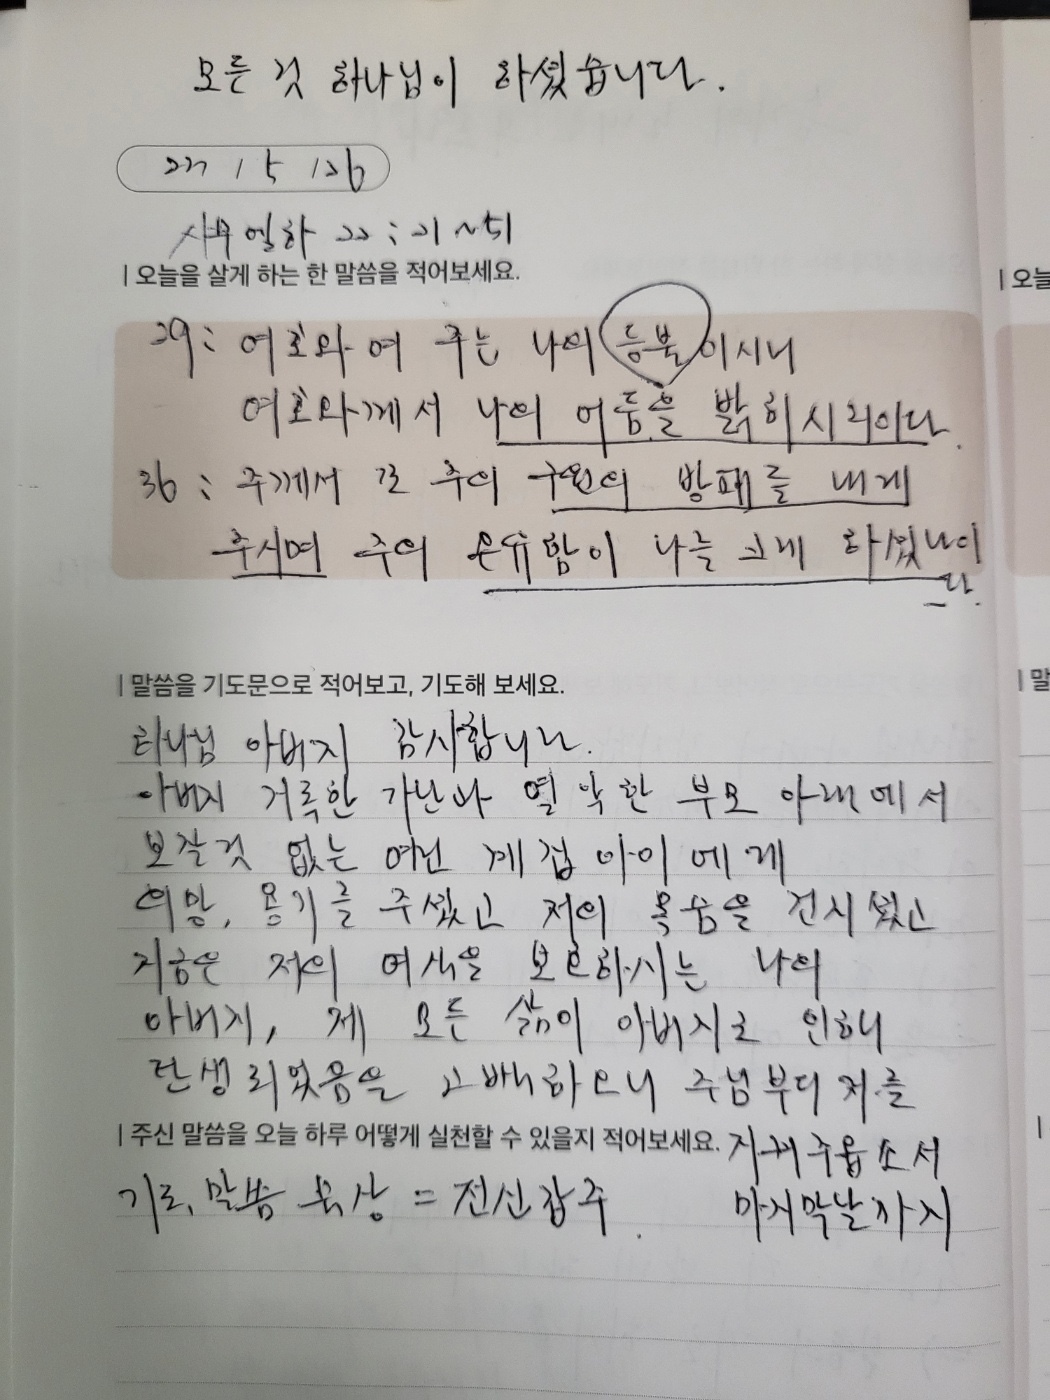 모든 것 하나님이 하셨습니다.
22 / 5 / 26
사무엘하 22 : 21 ~ 51
| 오늘을 살게 하는 한 말씀을 적어보세요.
| 오늘
29 : 여호와여 주는 나의 등불이시니
여호와께서 나의 어둠을 밝히시리이다.
36 : 주께서 또 주의 구원의 방패를 내게
주시며 주의 온유함이 나를 크게 하셨나이
다.
| 말씀을 기도문으로 적어보고, 기도해 보세요.
| 말
하나님 아버지 감사합니다.
아버지 거룩한 가난과 열악한 부모 아래에서
보잘것 없는 여린 계집아이에게
희망, 용기를 주셨고 저의 목숨을 건지셨고
지금은 저의 여식을 보호하시는 나의
아버지, 제 모든 삶이 아버지로 인하니
탄생되었음을 고백하오니 주님부디 저를
| 주신 말씀을 오늘 하루 어떻게 실천할 수 있을지 적어보세요.
지켜주옵소서
마지막날까지
기도, 말씀 묵상 = 전신갑주.